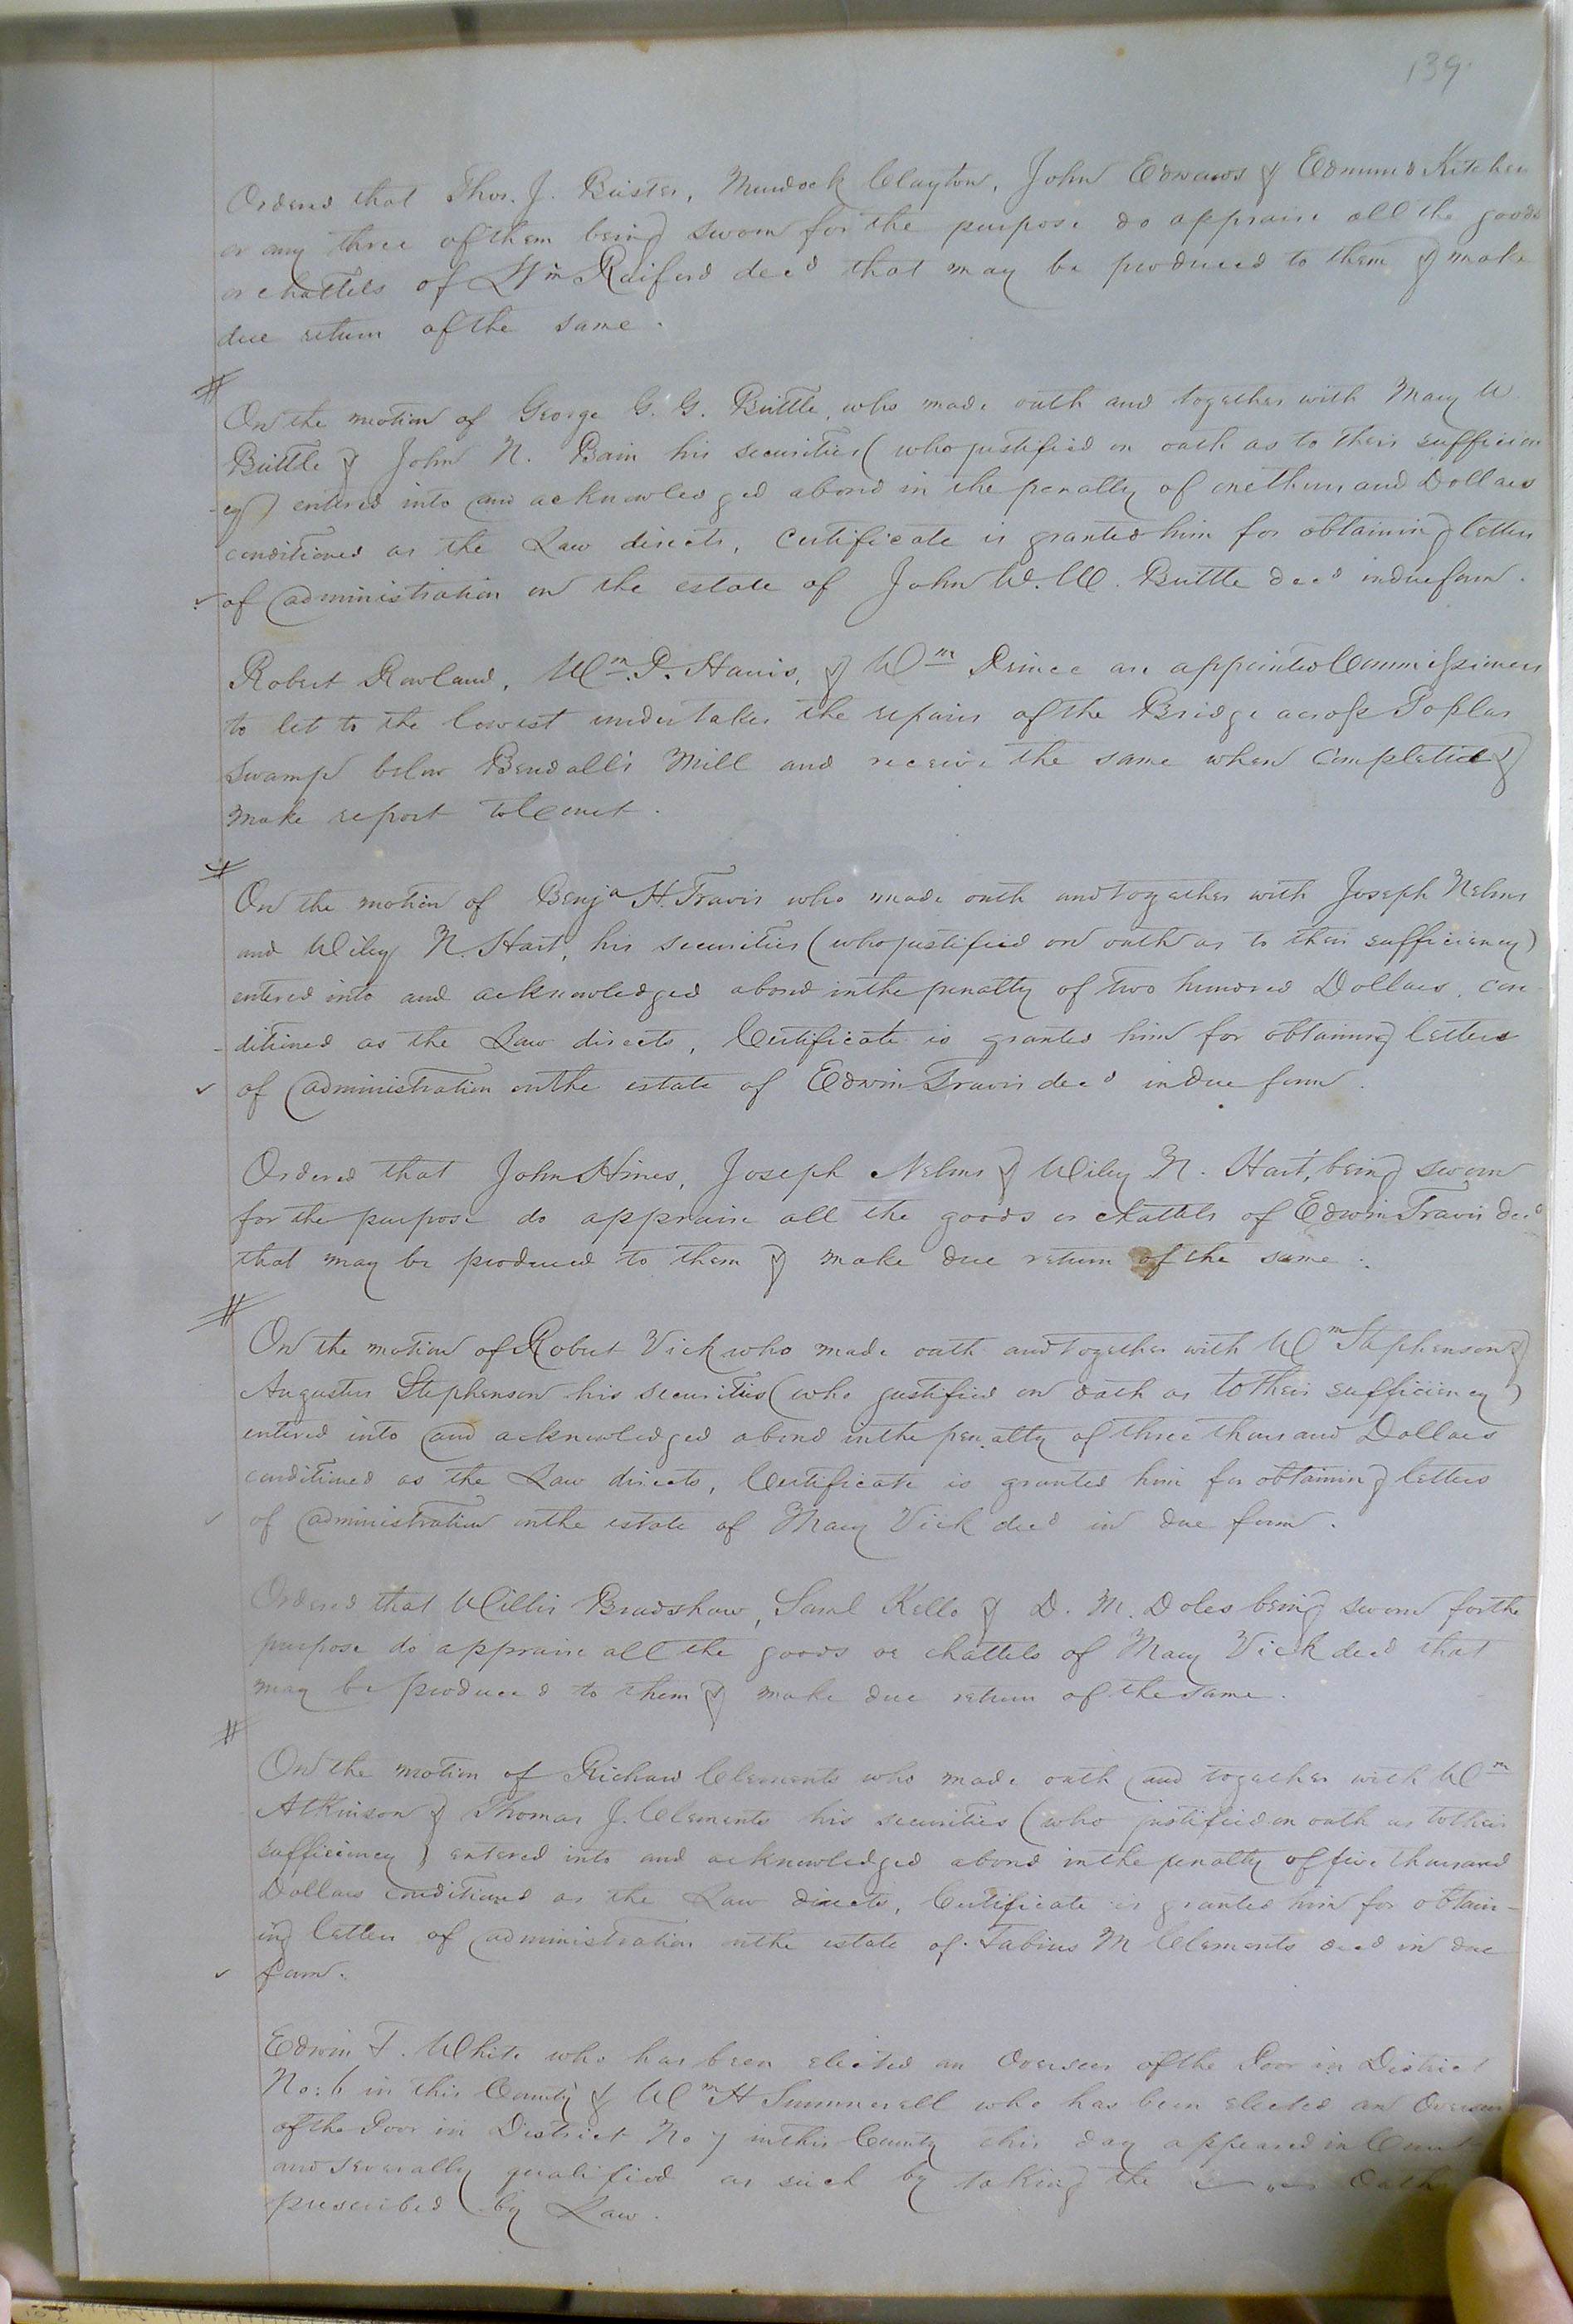 139.
Ordered that Thos. J. Brister, Murdock Clayton, John Edwards & Edmund Kitchen
or any three of them being sworn for the purpose do appraise all the goods
or chattels of Wm Raiford decd that may be produced to them & make
due return of the same.
On the motion of George G. G. Brittle, who made oath and together with Mary W.
Brittle & John N. Bain his securities (who justified on oath as to their sufficien
-cy) entered into and acknowledged a bond in the penalty of one thousand Dollars
conditioned as the Law directs, Certificate is granted him for obtaining letters
of administration on the estate of John W. W. Brittle decd in due form.
Robert Rowland, Wm. P. Harris, & Wm Prince are appointed Commissioners
to let to the lowest undertaker the repairs of the Bridge across Poplar
Swamp below Bendall's Mill and receive the same when completed &
make report to Court.
On the motion of Benja H. Travis who made oath and together with Joseph Nelms
and Wiley N. Hart, his securities (who justified on oath as to their sufficiency)
entered into and acknowledged a bond in the penalty of two hundred Dollars, con
-ditioned as the Law directs, Certificate is granted him for obtaining letters
of administration on the estate of Edwin Travis decd in due form.
Ordered that John Hines, Joseph Nelms & Wiley N. Hart, being sworn
for the purpose do appraise all the goods or chattels of Edwin Travis decd
that may be produced to them & make due return of the same.
On the motion of Robert Vick who made oath and together with Wm Stephenson &
Augustus Stephenson his securities (who justified on oath as to their sufficiency)
entered into and acknowledged a bond in the penalty of three thousand Dollars
conditioned as the Law directs, Certificate is granted him for obtaining letters
of administration on the estate of Mary Vick decd in due form.
Ordered that Willis Bradshaw, Saml Kello & D. M. Doles being sworn for the
purpose do appraise all the goods or chattels of Mary Vick decd that
may be produced to them & make due return of the same.
On the motion of Richard Clements who made oath and together with Wm
Atkinson & Thomas J. Clements his securities (who justified on oath as to their
sufficiency) entered into and acknowledged a bond in the penalty of five thousand
Dollars conditioned as the Law directs, Certificate is granted him for obtain-
ing letters of administration on the estate of Fabius M Clements decd in due
form.
Edwin F. White who has been elected an Overseer of the Poor in District
No: 6 in this County & Wm H Summerell who has been elected an Overseer
of the Poor in District No 7 in this County this day appeared in Court
and severally qualified as such by taking the Oaths
prescribed by Law.